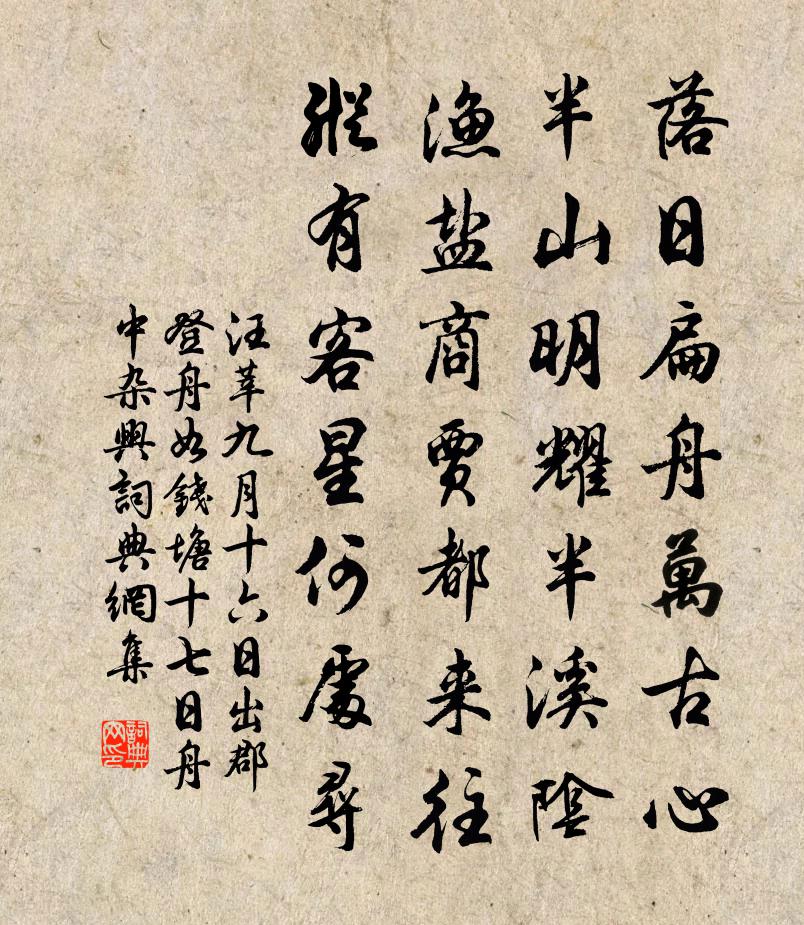 落日扁舟萬古心
半山明耀半溪陰
漁盐商賈都来往
縱有客星何處尋
汪莘九月十六日出郡
登舟如錢塘十七日舟
中杂興詞典網集
詞典